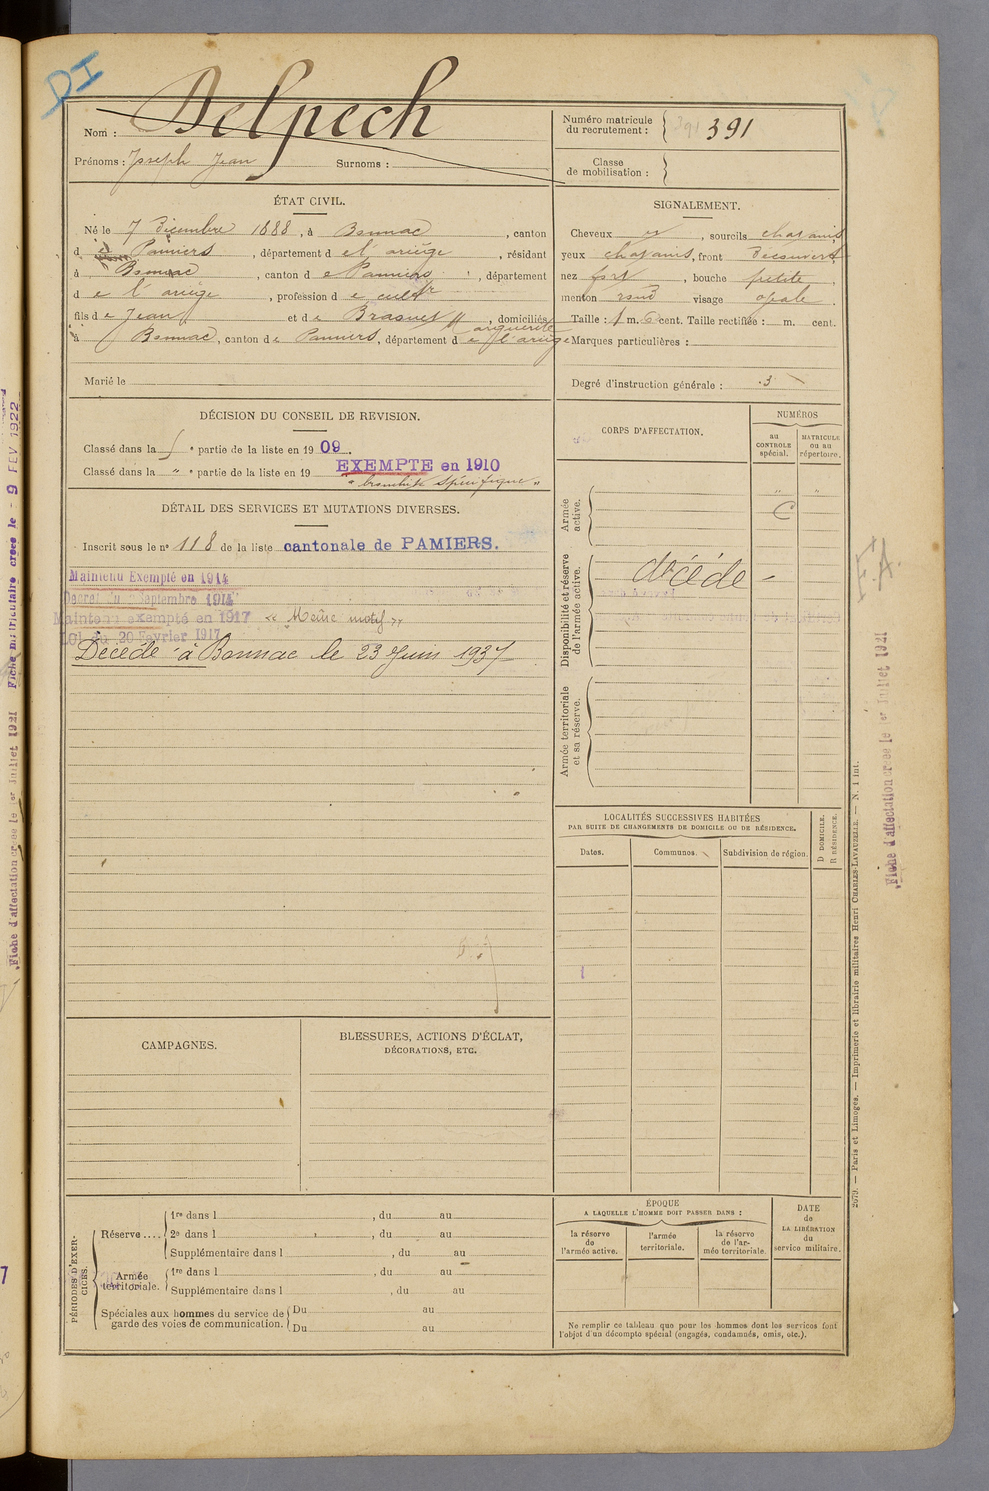 DI
Nom : Delpech
Prénoms : Joseph Jean Surnoms :
Numéro matricule du recrutement : 391 391
Classe de mobilisation :
ÉTAT CIVIL.
Né le 7 Décembre 1888, à Bonnac, canton
d e Pamiers, département d e l'ariège, résidant
à Bonnac, canton d e Pamiers, département
d e l'ariège, profession d e cultr
fils d e Jean et d e Brasnet Marguerite, domiciliés
à Bonnac, canton d e Pamiers, département d e l'ariège
Marié le
SIGNALEMENT.
Cheveux et, sourcils chatains
yeux chatains, front découvert
nez fort, bouche petite,
menton rond visage ovale.
Taille : 1 m. 6 cent. Taille rectifiée : m. cent.
Marques particulières :
Degré d'instruction générale : 3
DÉCISION DU CONSEIL DE REVISION.
Classé dans la e partie de la liste en 19 09.
Classé dans la " e partie de la liste en 19 EXEMPTÉ en 1910
"bronchite spécifique"
DÉTAIL DES SERVICES ET MUTATIONS DIVERSES.
Inscrit sous le n° 118 de la liste cantonale de PAMIERS.
Maintenu Exempté en 1914
Décret du Septembre 1914
Maintenu exempté en 1917 « Même motif »
Loi du 20 Février 1917
Décédé à Bonnac le 23 Juin 1937
CORPS D'AFFECTATION.
NUMÉROS
au CONTROLE spécial.
MATRICULE ou au répertoire.
Armée active.
" "
C
Disponibilité et réserve de l'armée active.
décédé
Armée territoriale et sa réserve.
LOCALITÉS SUCCESSIVES HABITÉES
PAR SUITE DE CHANGEMENTS DE DOMICILE OU DE RÉSIDENCE.
Dates. Communes. Subdivision de région.
D DOMICILE.
R RÉSIDENCE.
CAMPAGNES.
BLESSURES, ACTIONS D'ÉCLAT,
DÉCORATIONS, ETC.
PÉRIODES D'EXERCICES.
Réserve .... 1re dans l , du au
2e dans l , du au
Supplémentaire dans l , du au
Armée territoriale. 1re dans l , du au
Supplémentaire dans l , du au
Spéciales aux hommes du service de garde des voies de communication. Du au
Du au
ÉPOQUE
A LAQUELLE L'HOMME DOIT PASSER DANS :
la réserve de l'armée active.
l'armée territoriale.
la réserve de l'armée territoriale.
DATE de LA LIBÉRATION du service militaire.
Ne remplir ce tableau que pour les hommes dont les services font
l'objet d'un décompte spécial (engagés, condamnés, omis, etc.).
2679. — Paris et Limoges. — Imprimerie et librairie militaires Henri CHARLES-LAVAUZELLE. — N. 1 int.
F.A.
Fiche d'affectation créée le 1er Juillet 1921
Fiche d'affectation créée le 1er Juillet 1921 Fiche matriculaire créée le - 9 FEV 1922
7